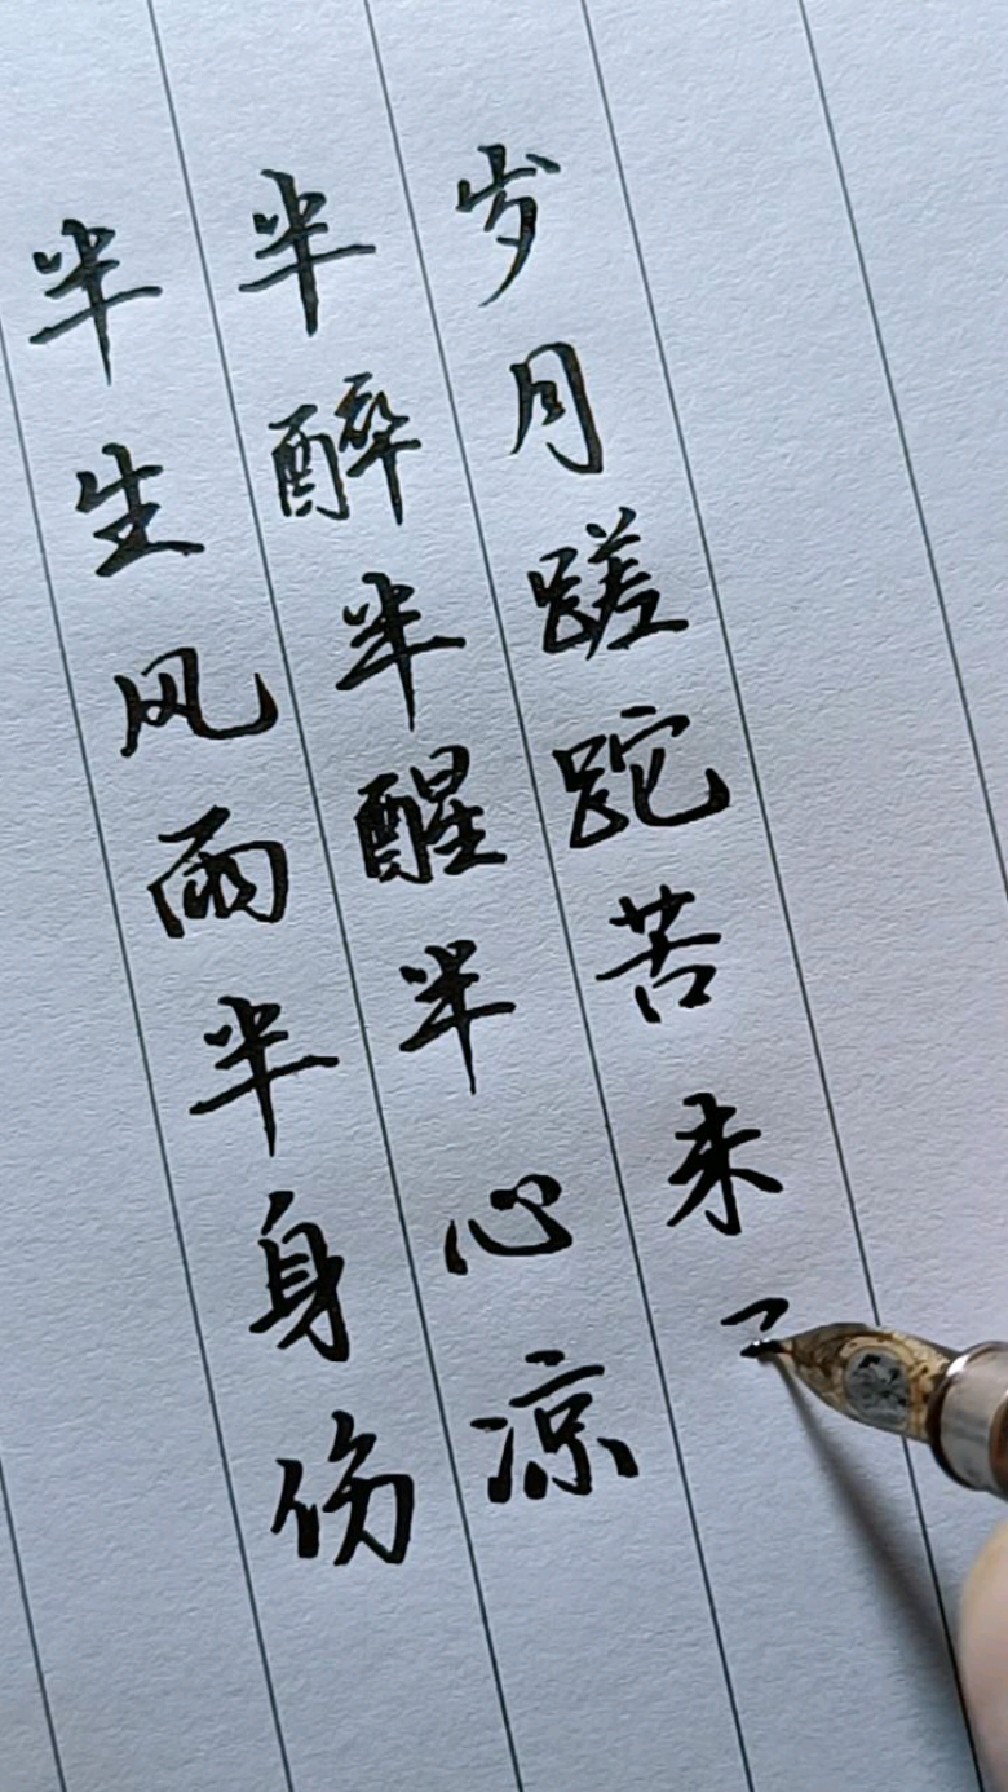 半生风雨半身伤
半醉半醒半心凉
岁月蹉跎苦来